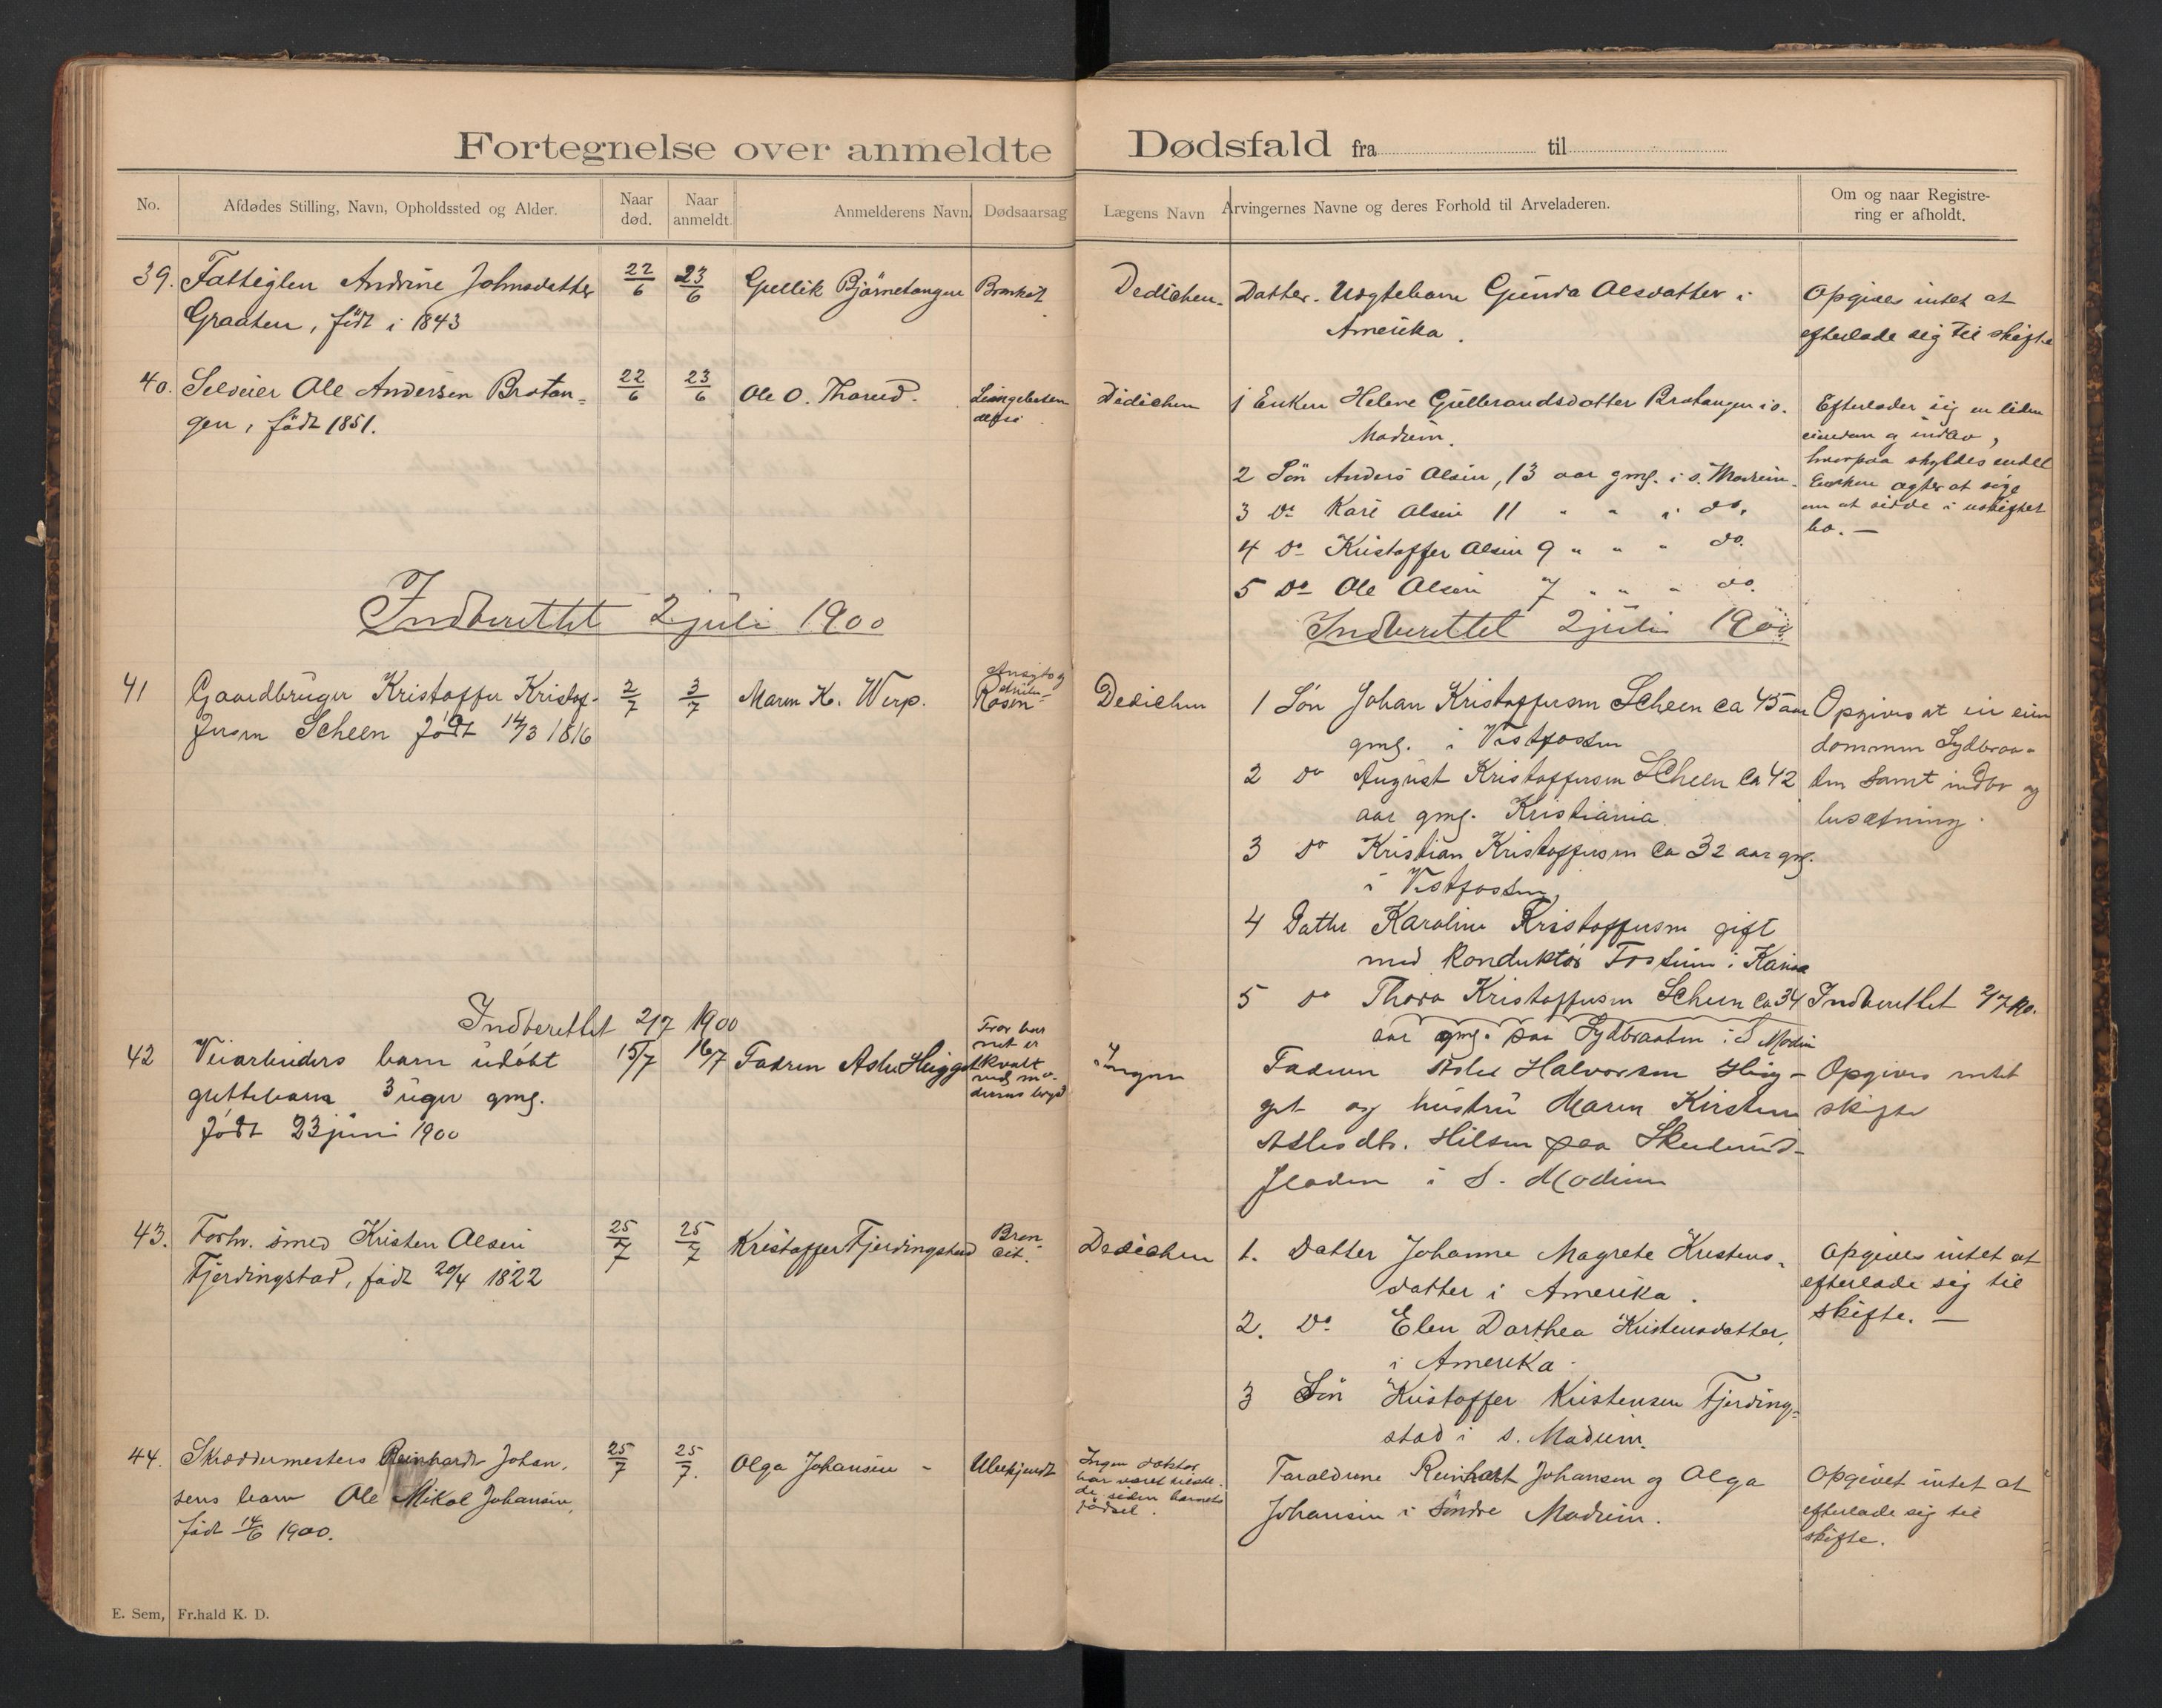 Fortegnelse over anmeldte Dødsfald fra til
No.
Afdødes Stilling, Navn, Opholdssted og Alder.
Naar død.
Naar anmeldt.
Anmelderens Navn.
Dødsaarsag
Lægens Navn
Arvingernes Navne og deres Forhold til Arveladeren.
Om og naar Registre-
ring er afholdt.
39. Fattiglem Andrine Johnsdatter
Graaten, født i 1843
22/6
23/6
Gullik Bjørnetangen
Dedichen.
Datter. Uægtebarn Gunda Olsdatter i
Amerika.
Opgives intet at
efterlade sig til skifte
40. Selveier Ole Andersen Bratan-
gen, født 1851.
22/6
23/6
Ole O. Thorud.
Dedichen
1 Enken Helene Gulbrandsdatter Bratangen i s.
Modum.
2 Søn Anders Olsen, 13 aar gml. i s. Modum.
3 Do Kare Olsen 11 " " i do.
4 Do Kristoffer Olsen 9 " " " do.
5 Do Ole Olsen 7 " " " do.
Efterlader sig en liden
eiendom og indbo,
hvorpaa skyldes endel
Enken agter at søge
om at sidde i uskiftet
bo. —
Indberettet 2 juli 1900
Indberettet 2 juli 1900
41 Gaardbruger Kristoffer Kristof-
fersen Scheen født 14/3 1816
2/7
3/7
Maren K. Werp.
Rosen
Dedichen
1 Søn Johan Kristoffersen Scheen ca 45 aar
gml. i Vestfossen
2 do August Kristoffersen Scheen ca 42
aar gml. Kristiania
3 do Kristian Kristoffersen ca 32 aar gml.
i Vestfossen
4 Datter Karoline Kristoffersen gift
med konduktør Fossum i
5 do Thora Kristoffersen Scheen ca 34
aar gml. paa Sydbraaten i S Modum
Opgives at eie eien
dommen Sydbraa-
ten samt indbo og
besætning.
Indberettet 2/7 1900
Indberettet 2/7 00.
42 Veiarbeiders barn udøbt
guttebarn 3 uger gml.
født 23 juni 1900
15/7
16/7
Fadren Asle Hegget
Tror bar
net er
kvalt
ved mo-
derens bryst
Ingen
Fadren Asle Halvorsen Heg-
get og hustru Maren Kirstine
Aslesdtr. Hilsen paa Skuterud-
fladen i S. Modum
Opgives intet
skifte
43. Forhv. smed Kristen Olsen
Fjerdingstad, født 20/4 1822
25/7
25/7
Kristoffer Fjerdingstad
Bron-
cit.
Dedichen
1. Datter Johanne Magrete Kristens-
datter i Amerika.
2. Do Elen Dorthea Kristensdatter,
i Amerika.
3 Søn Kristoffer Kristensen Fjerding-
stad i s. Modum.
Opgives intet at
efterlade sig til
skifte. —
44. Skræddermesters Reinhardt Johan-
sens barn Ole Mikal Johansen,
født 14/6 1900.
25/7
25/7.
Olga Johansen -
Ubekjendt
Ingen doktor
har været tilste-
de siden barnets
fødsel.
Foraldrene Reinhart Johansen og Olga
Johansen i Søndre Modum.
Opgivet intet at
efterlade sig til
skifte.
E. Sem, Fr.hald K. D.